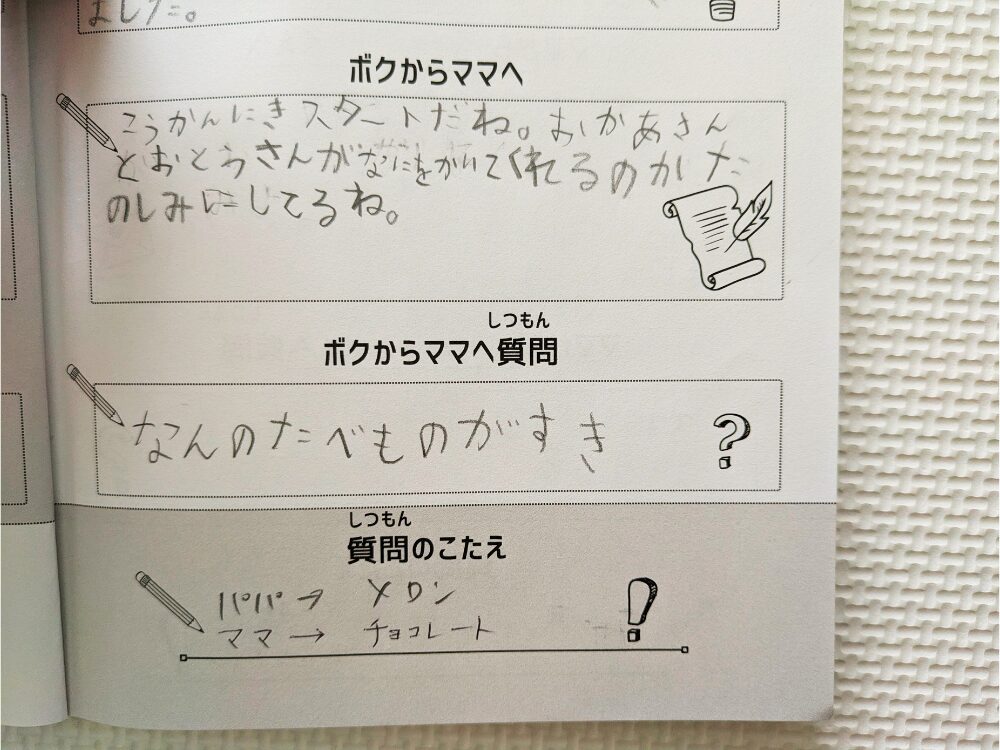 ました。
ボクからママへ
こうかんにきスタートだね。おかあさん
とおとうさんがなにをかいてくれるのかた
のしみにしてるね。
しつもん
ボクからママへ質問
なんのたべものがすき
?
しつもん
質問のこたえ
パパ→ メロン
ママ→ チョコレート
!